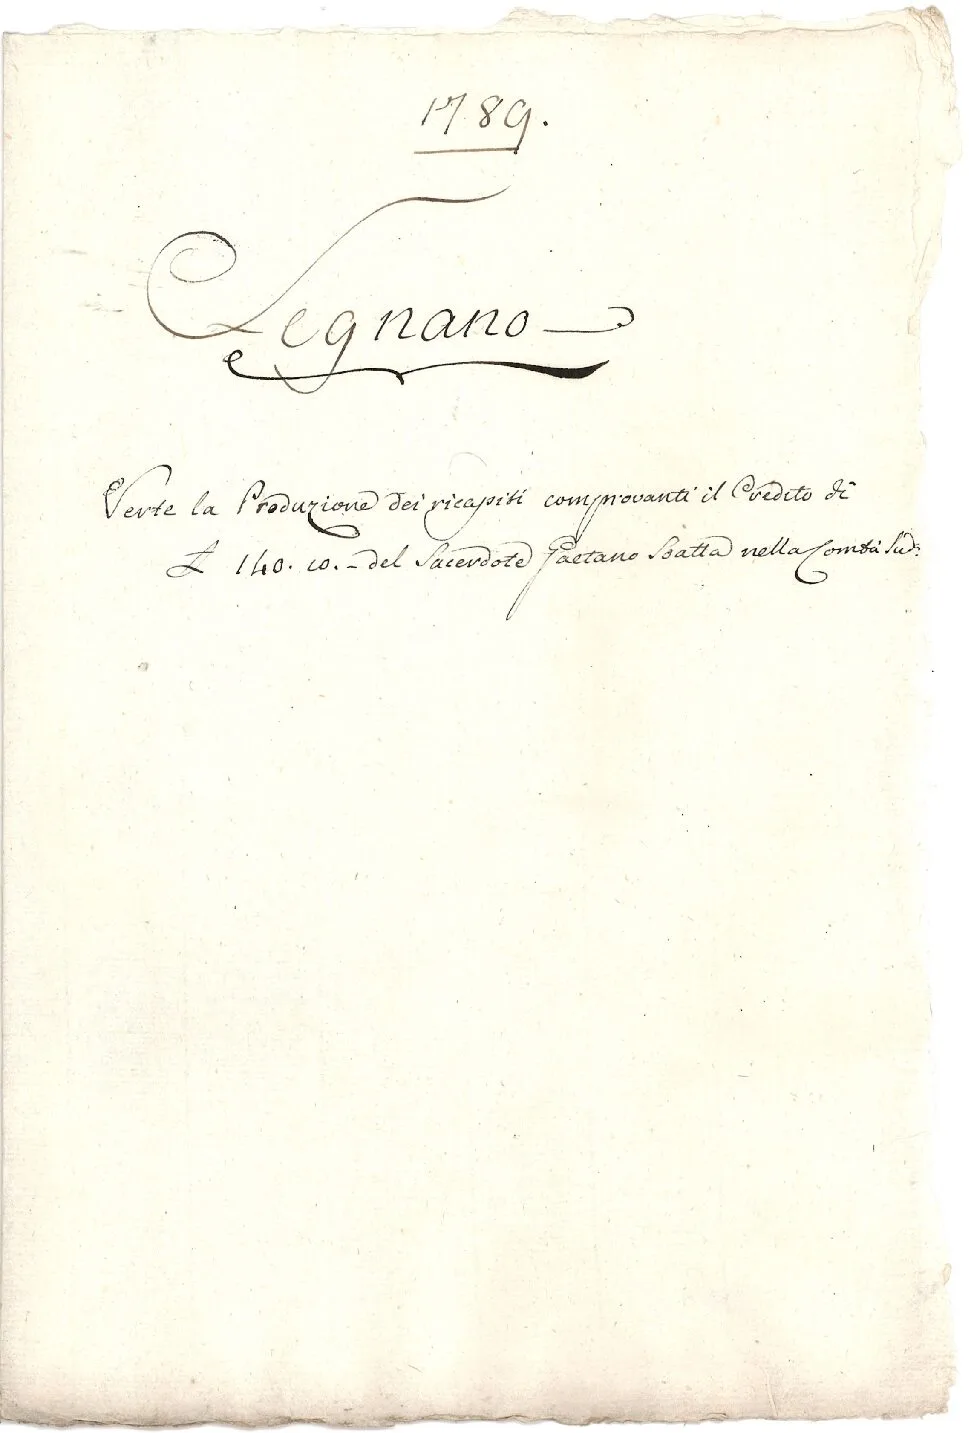 1789.
Legnano
Verte la Produzione dei ricapiti comprovanti il Credito di
£ 140. 10. - del Sacerdote Gaetano Sbatta nella Comtà Sud.